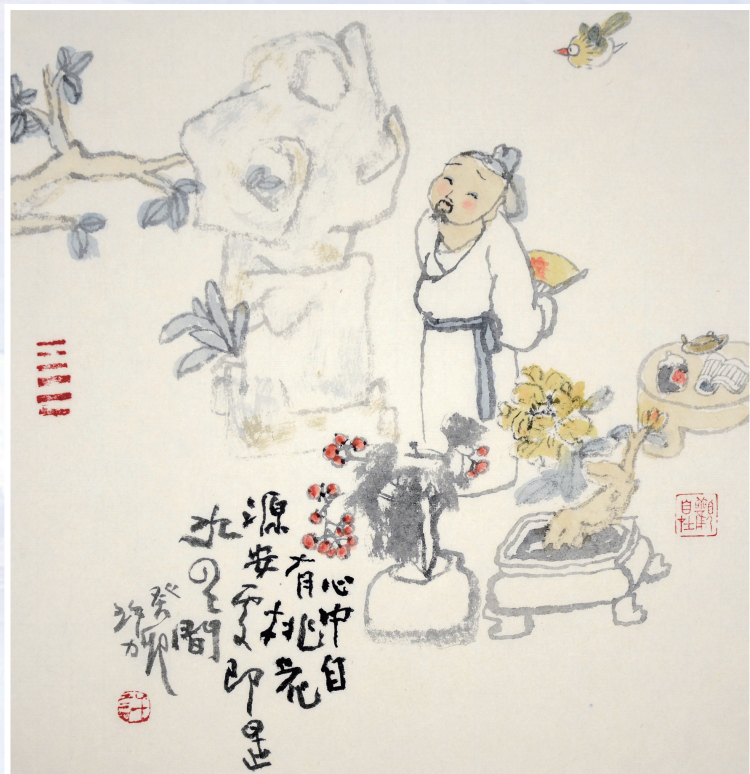 心中自
有桃花
源安處即是
水云間
癸卯
許力